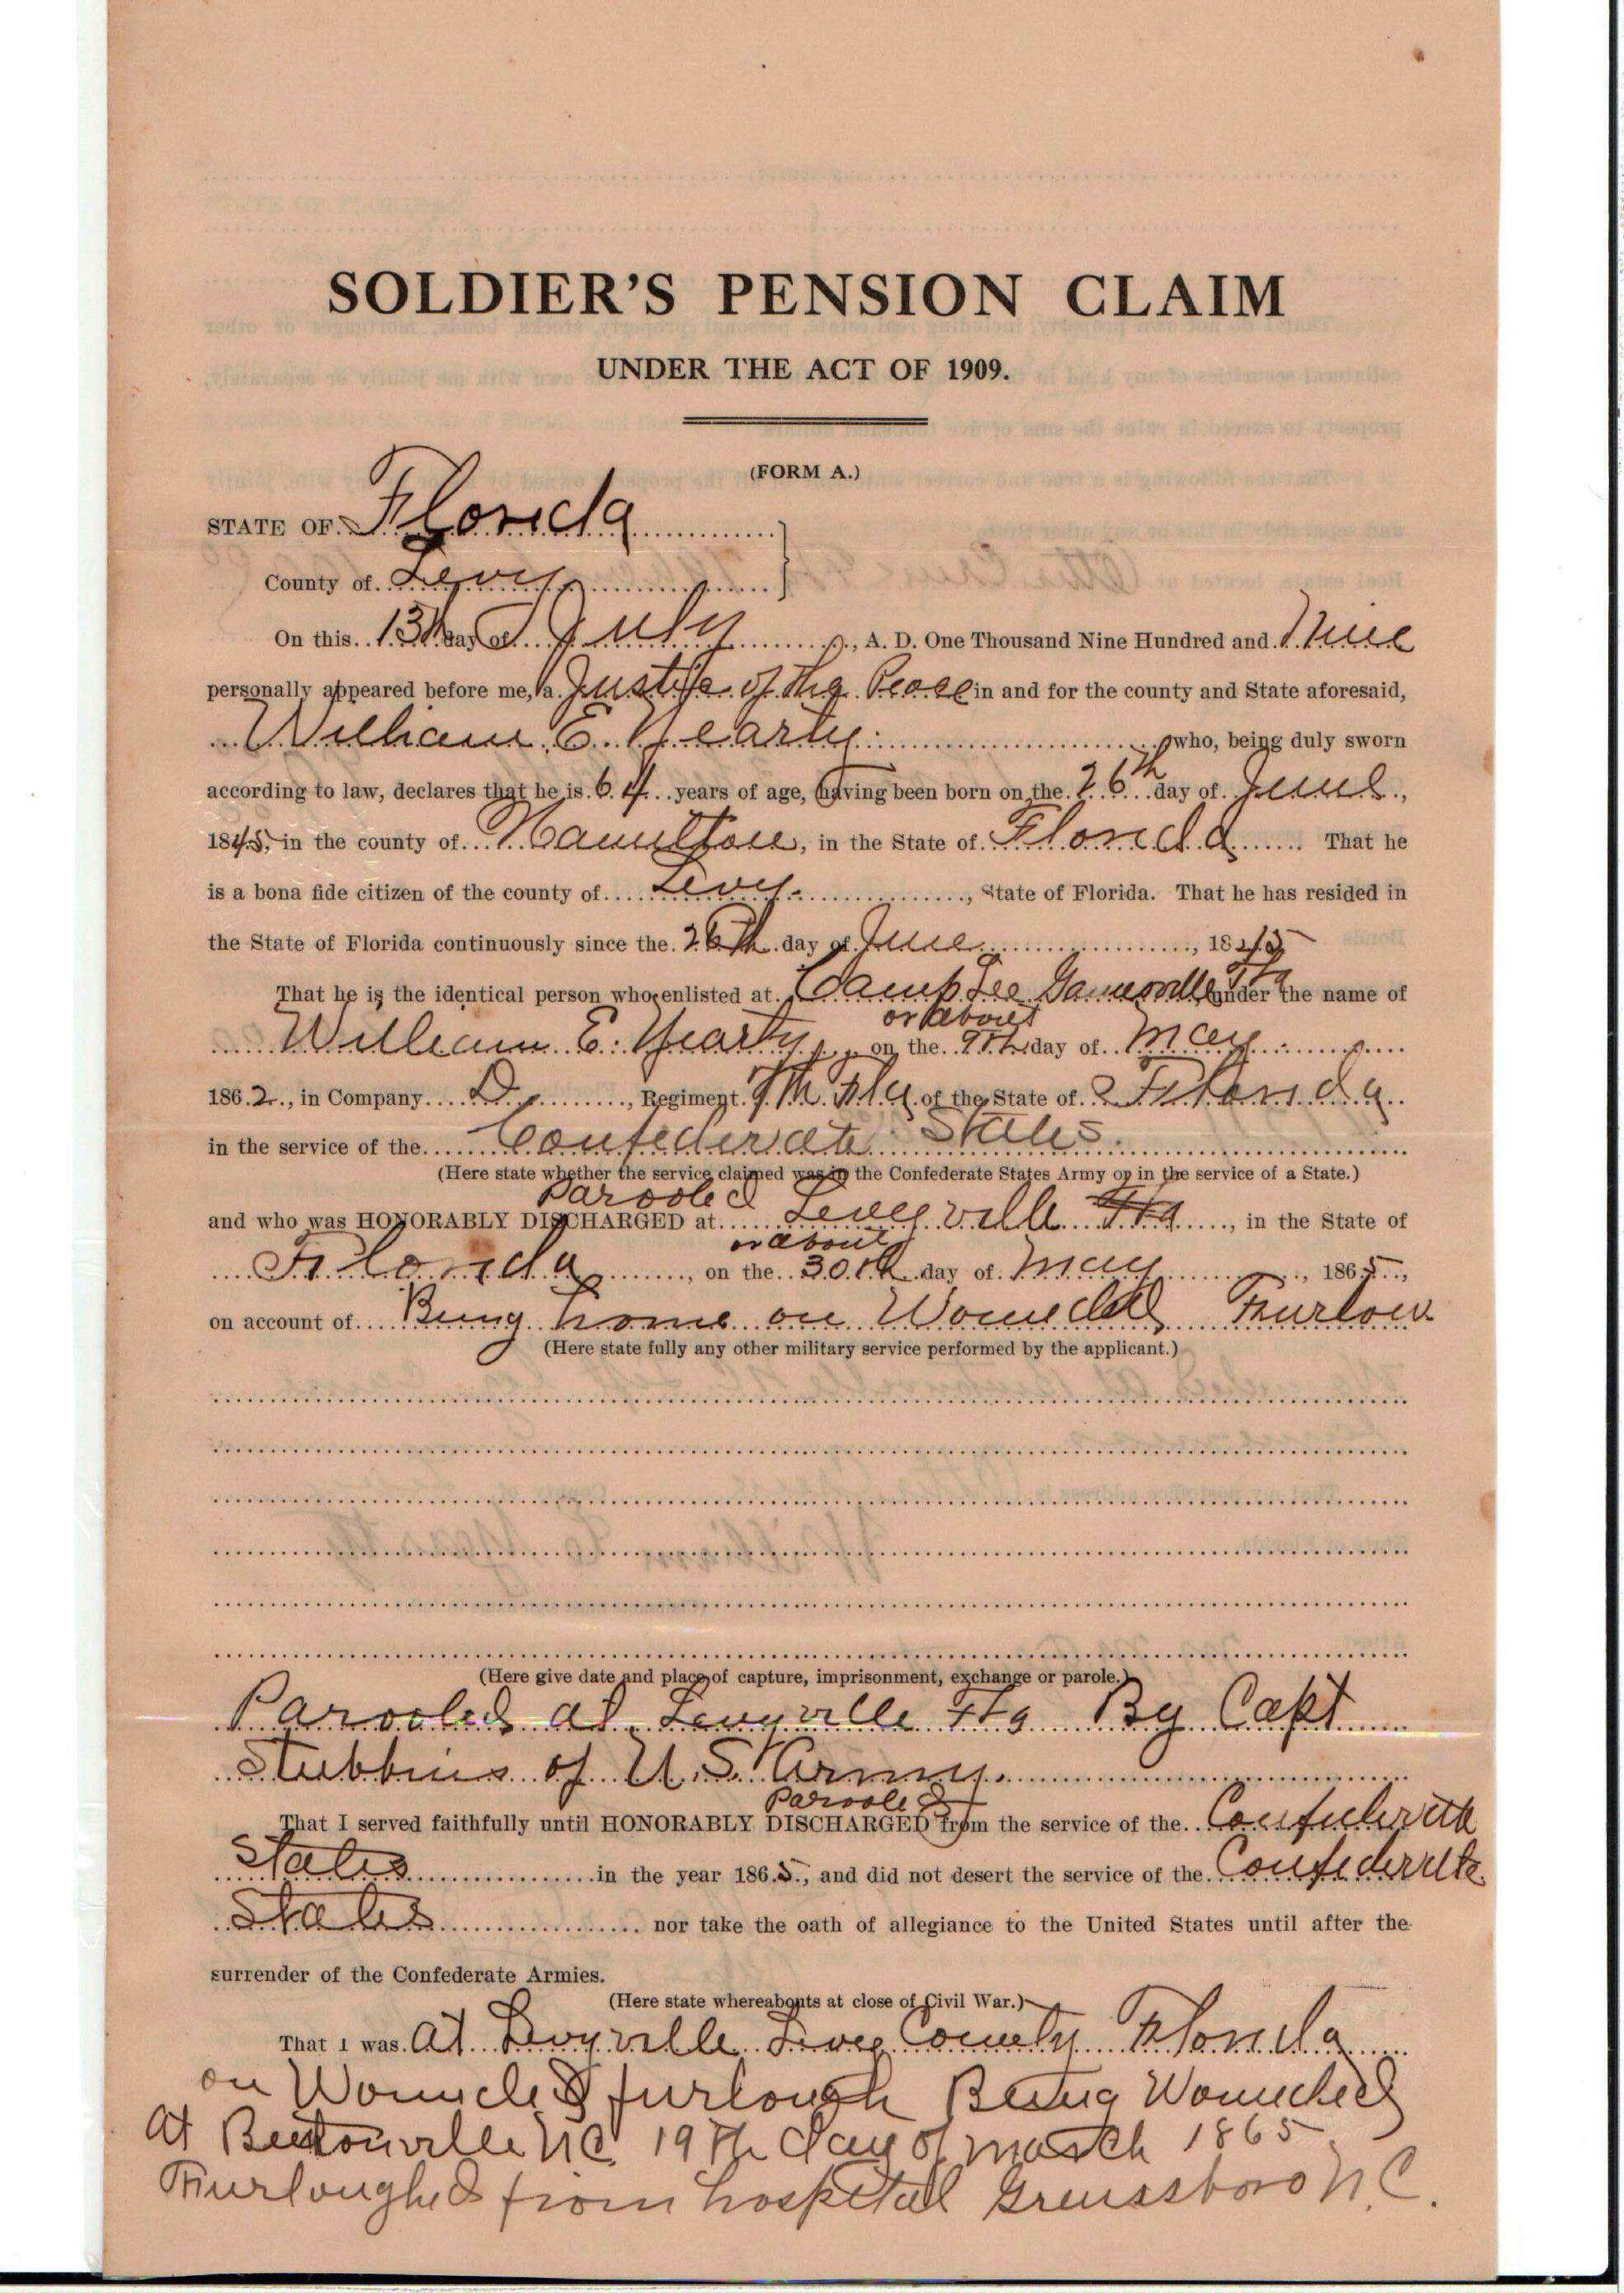 SOLDIER'S PENSION CLAIM
UNDER THE ACT OF 1909.
(FORM A.)
STATE OF Florida
County of Levy
On this 13th day of July, A. D. One Thousand Nine Hundred and Nine
personally appeared before me, a Justice of the Peace in and for the county and State aforesaid,
William E. Yearty who, being duly sworn
according to law, declares that he is 64 years of age, having been born on the 26th day of June,
1845, in the county of Hamilton, in the State of Florida That he
is a bona fide citizen of the county of Levy, State of Florida. That he has resided in
the State of Florida continuously since the 26th day of June, 1845
That he is the identical person who enlisted at Camp Lee Gainesville Fla under the name of
or about
William E. Yearty, on the 9th day of May
1862, in Company D, Regiment 9th Fla of the State of Florida
in the service of the Confederate States.
(Here state whether the service claimed was in the Confederate States Army or in the service of a State.)
Parooled
and who was HONORABLY DISCHARGED at Levyville Fla, in the State of
or about
Florida, on the 30th day of May, 1865,
on account of Being home on Wounded Furlow
(Here state fully any other military service performed by the applicant.)
(Here give date and place of capture, imprisonment, exchange or parole.)
Parooled at Levyville Fla By Capt
Stubbins of U.S. Army.
Parooled
That I served faithfully until HONORABLY DISCHARGED from the service of the Confederate
States in the year 1865, and did not desert the service of the Confederate
States nor take the oath of allegiance to the United States until after the
surrender of the Confederate Armies.
(Here state whereabouts at close of Civil War.)
That I was at Levyville Levy County Florida
on Wounded furlough Being Wounded
at Bentonville NC 19th day of March 1865
Furloughed from hospital Greensboro N.C.